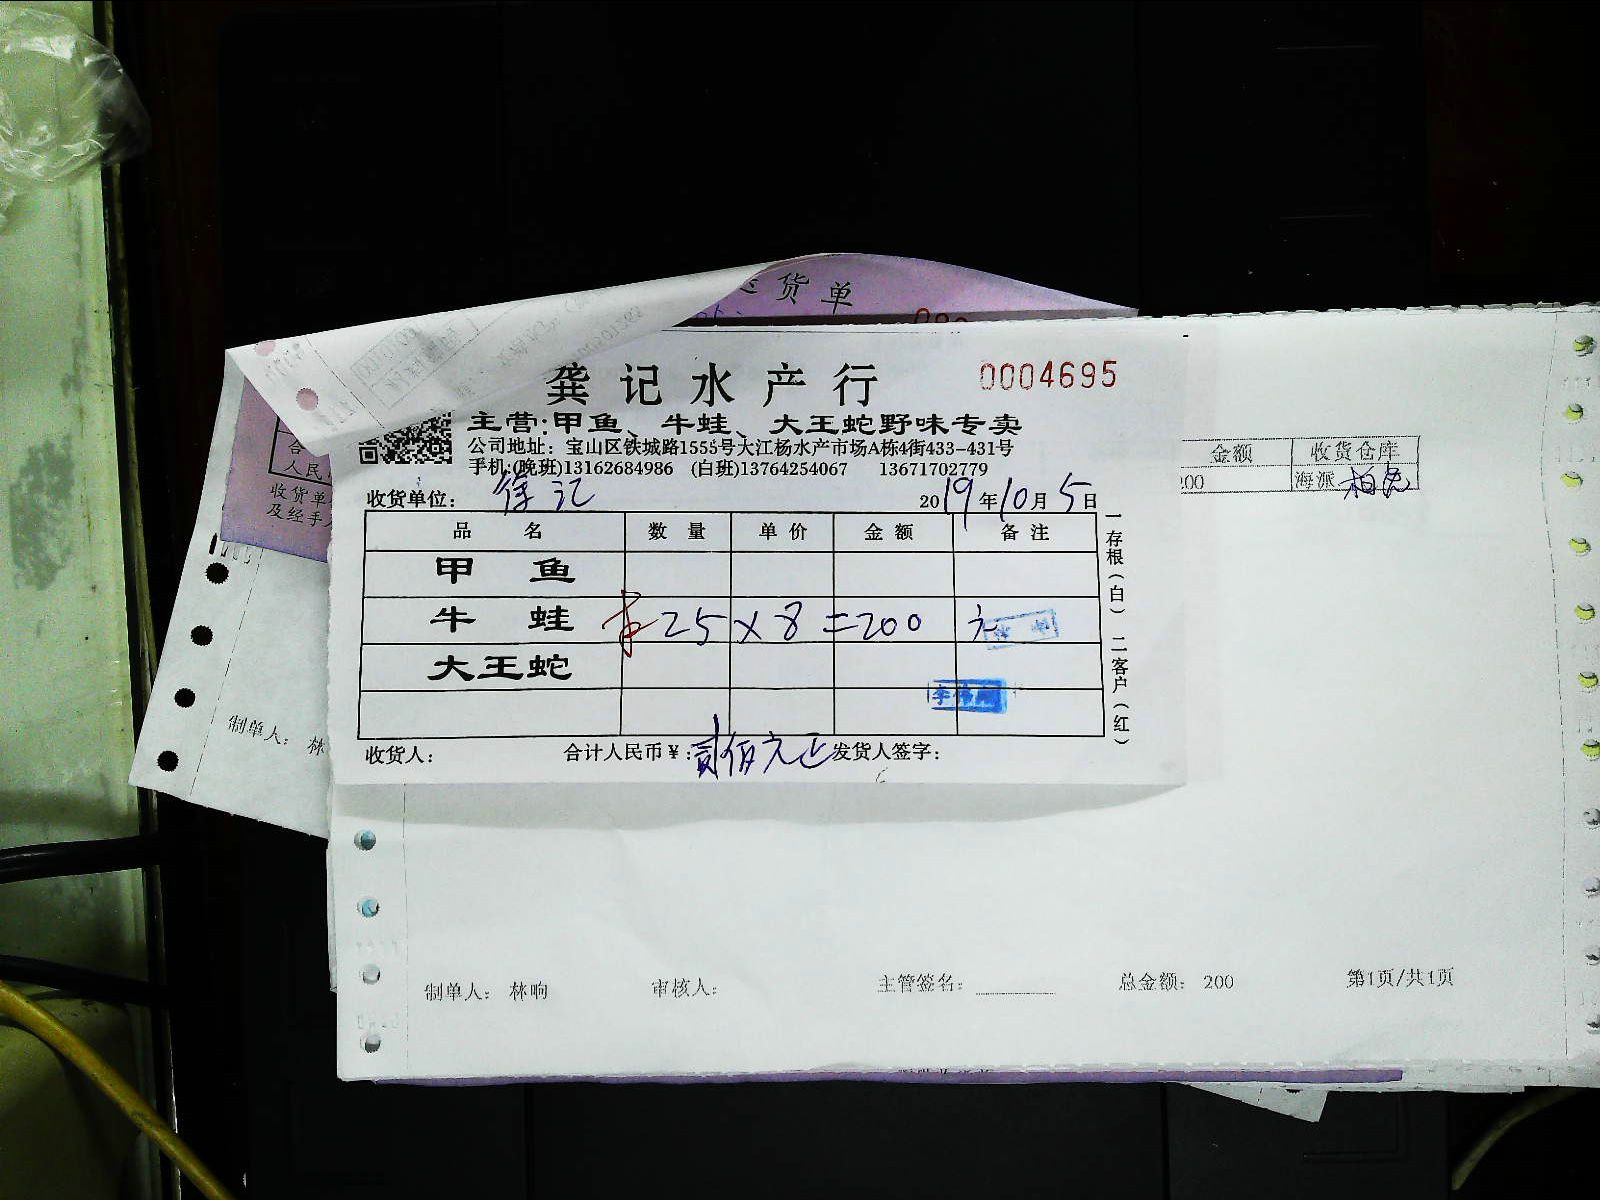 货单
龚记水产行
0004695
主营:甲鱼、牛蛙、大王蛇野味专卖
公司地址：宝山区铁城路1555号大江杨水产市场A栋4街433-431号
手机:(晚班)13162684986 (白班)13764254067 13671702779
收货单位： 徐记 2019年10月5日
品名 数量 单价 金额 备注
甲鱼
牛蛙 25 × 8 =200 元
大王蛇
收货人： 合计人民币￥:贰佰元正 发货人签字：
一存根(白) 二客户(红)
金额 收货仓库
200 海派
人民
收货单
及经手
制单人： 林
制单人： 林响 审核人： 主管签名： 总金额： 200 第1页/共1页